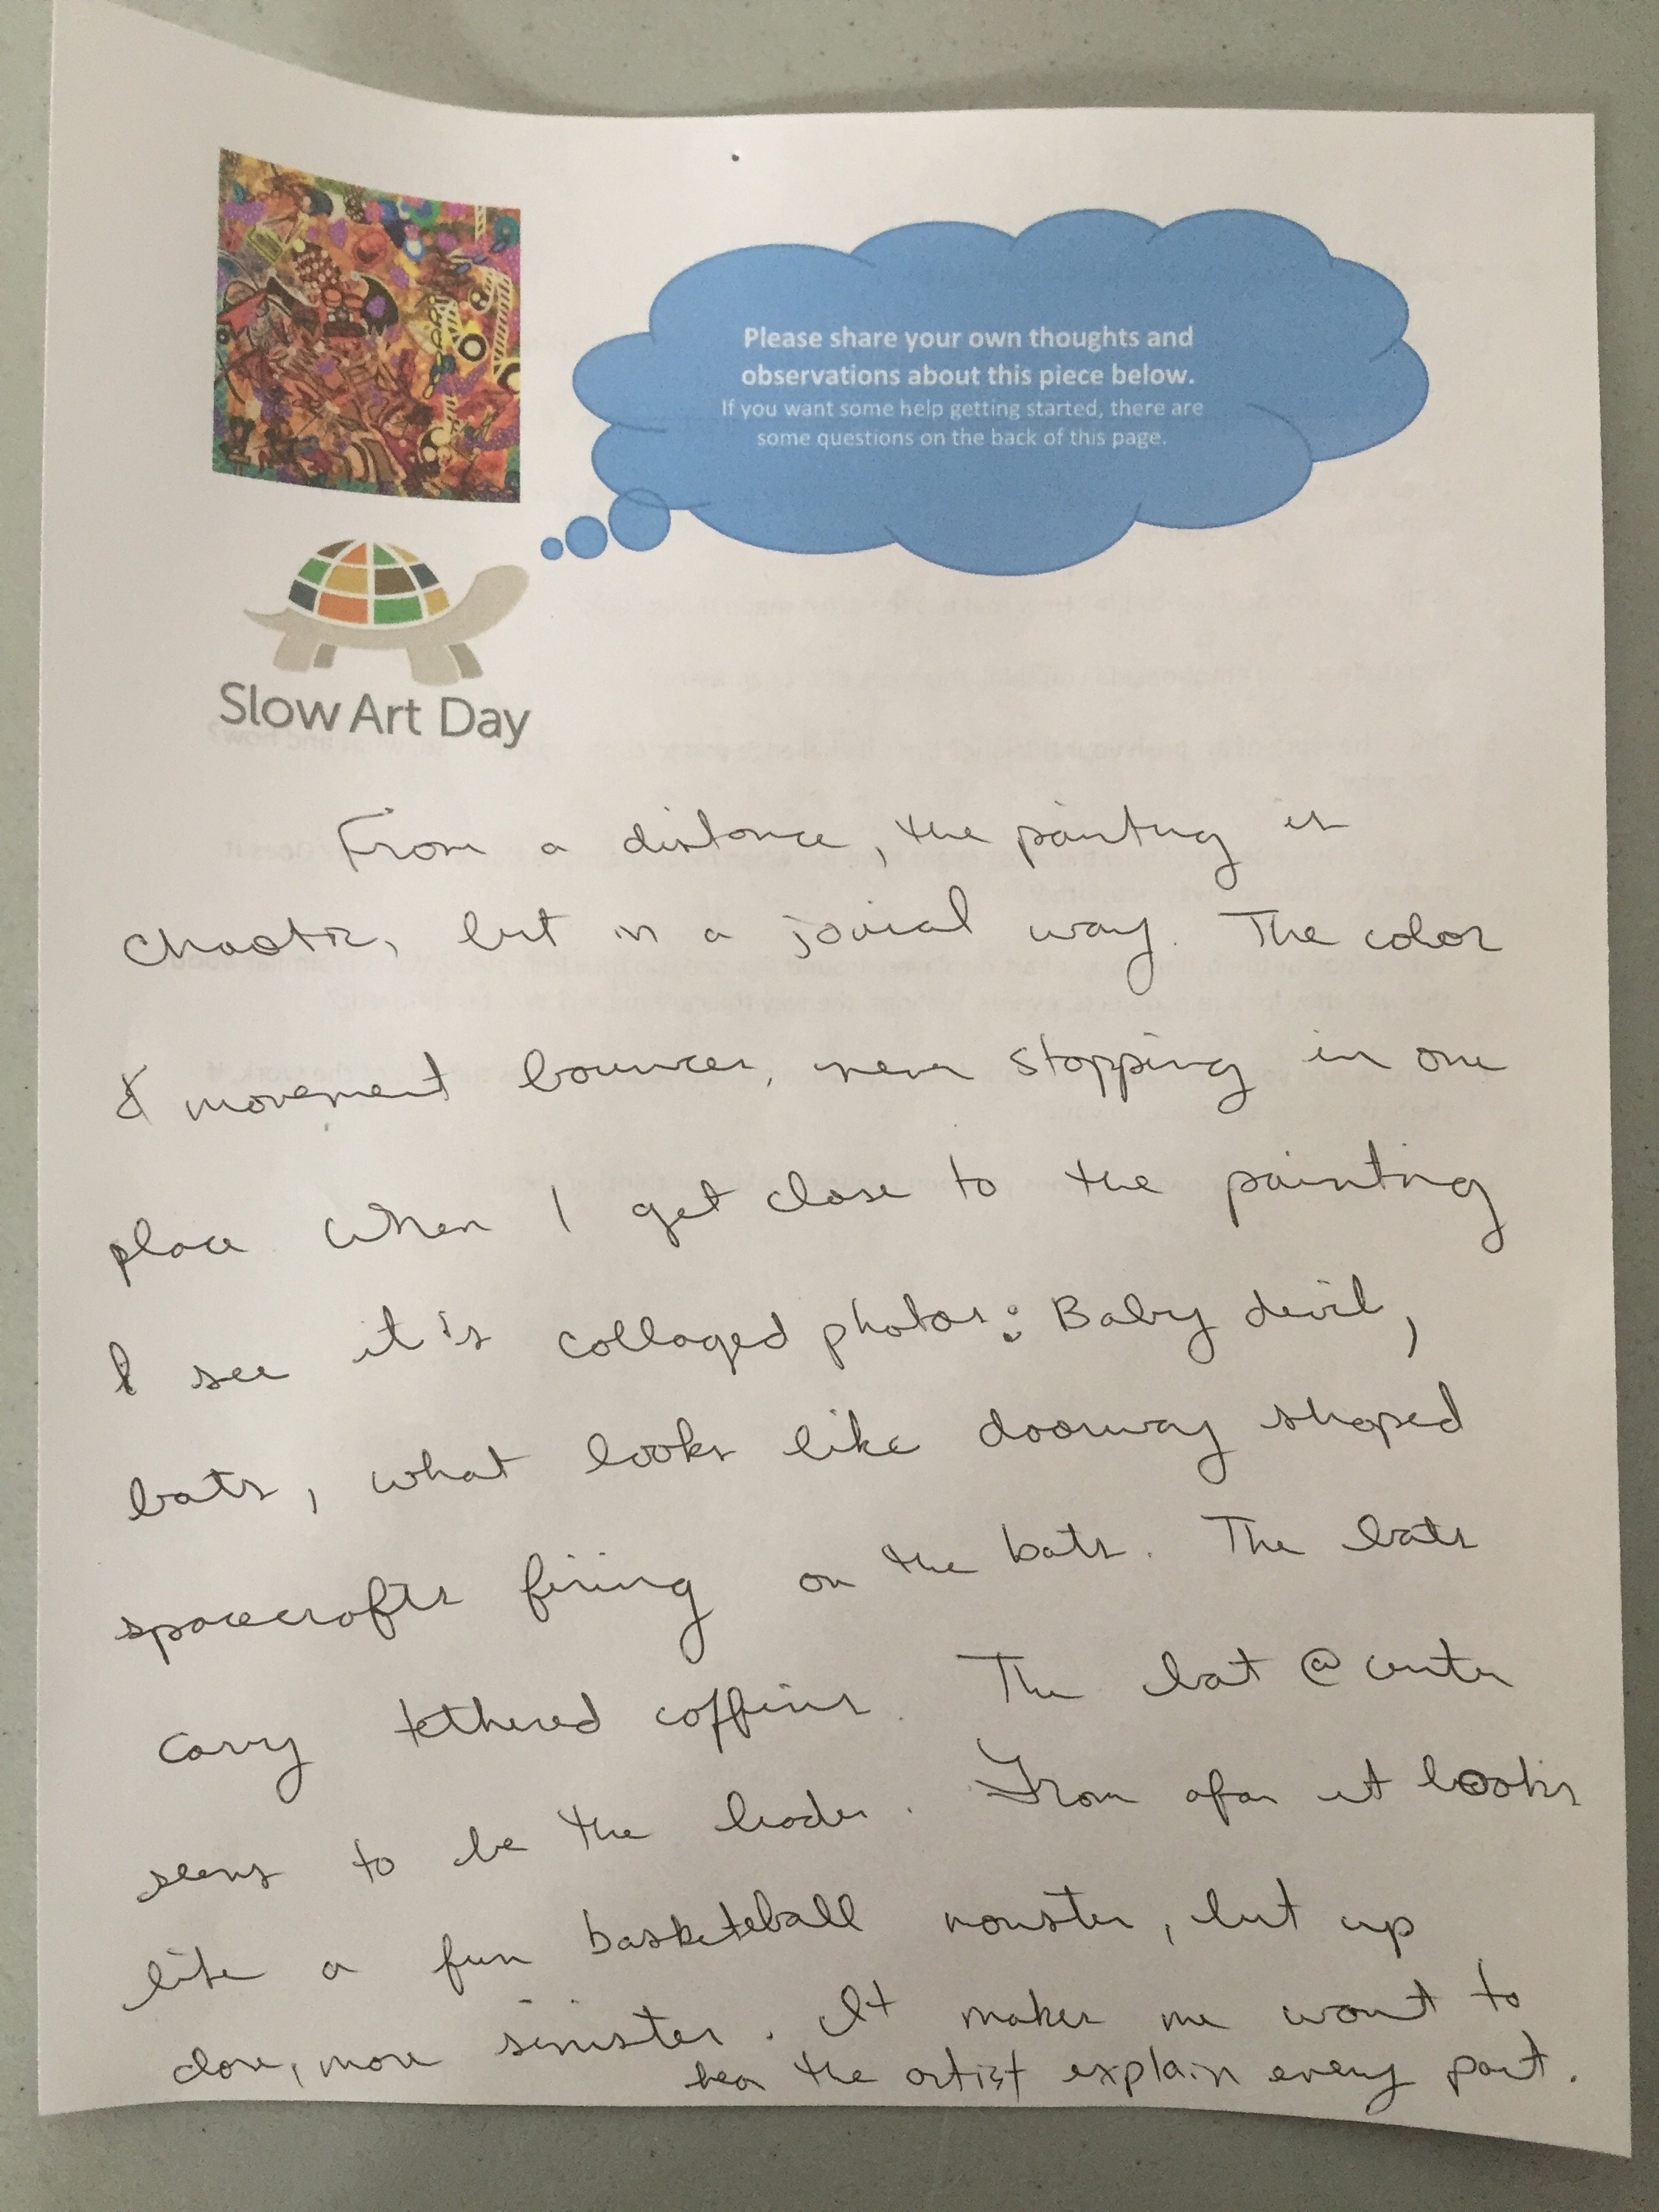 Please share your own thoughts and
observations about this piece below.
If you want some help getting started, there are
some questions on the back of this page.
Slow Art Day
From a distance, the painting is
chaotic, but in a jovial way. The color
& movement bounces, never stopping in one
place When I get close to the painting
I see it's collaged photos: Baby devil,
bats, what looks like doorway shaped
spacecrafts firing on the bats. The bats
carry tethered coffins. The bat @ center
seems to be the leader. From afar it looks
like a fun basketball monster, but up
close, more sinister. It makes me want to
hear the artist explain every part.